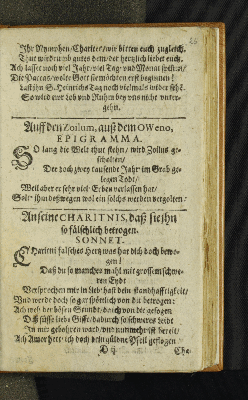 Ihr Nymphen/Charites/wir bitten euch zugleich.
Thut wiedrumb gutes dem/der hertzlich liebet euch.
Ach lasset noch viel Jahr/viel Tag und Monat
Die Parcas/wolte Gott sie möchten erst beginnen!
Laß ihn S. Heinrichs Tag noch vielmals wieder sehn/
So wird ewr Lob und Ruhm bey uns nicht unter-
gehn.
Auff den Zoilum, auß dem OWeno,
EPIGRAMMA.
SO lang die Welt thut stehn/wird Zoilus ge-
scholten/
Der doch zwey tausende Jahr im Grab ge-
legen Todt/
Weil aber er sehr viel Erben verlassen hat/
Solt ihn deßwegen wol ein solchs werden vergolten?
An seine CHARITNIS, daß sie ihn
so fälschlich betrogen.
SONNET.
CHariteni falsches Hertz was hat dich doch bewo-
gen!
Daß du so manches mahl mit grossem schwe-
ren Eydt
Versprechen mir in Lieb hast dein standhafftigkeit/
Und werde doch so gar spöttlich von dir betrogen:
Ach weh der bösen Stundt/da ich von dir gesogen
Das süsse liebe Gifft/dadurch so schweres Leidt
In mir gebohren ward/und nunmehr ist bereit/
Ach Amor hett ich doch dein güldne Pfeil geflogen
D ij
Cha-